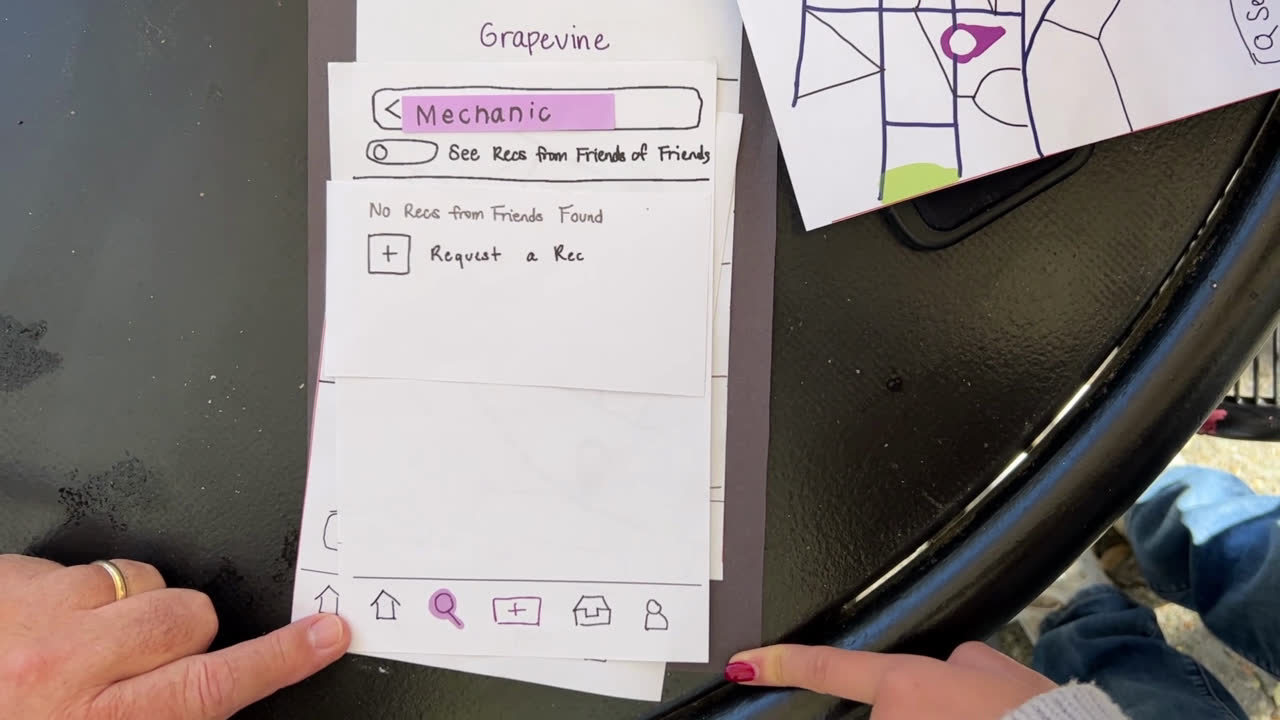 Grapevine
< Mechanic
See Recs from Friends of Friends
No Recs from Friends Found
+ Request a Rec
Se